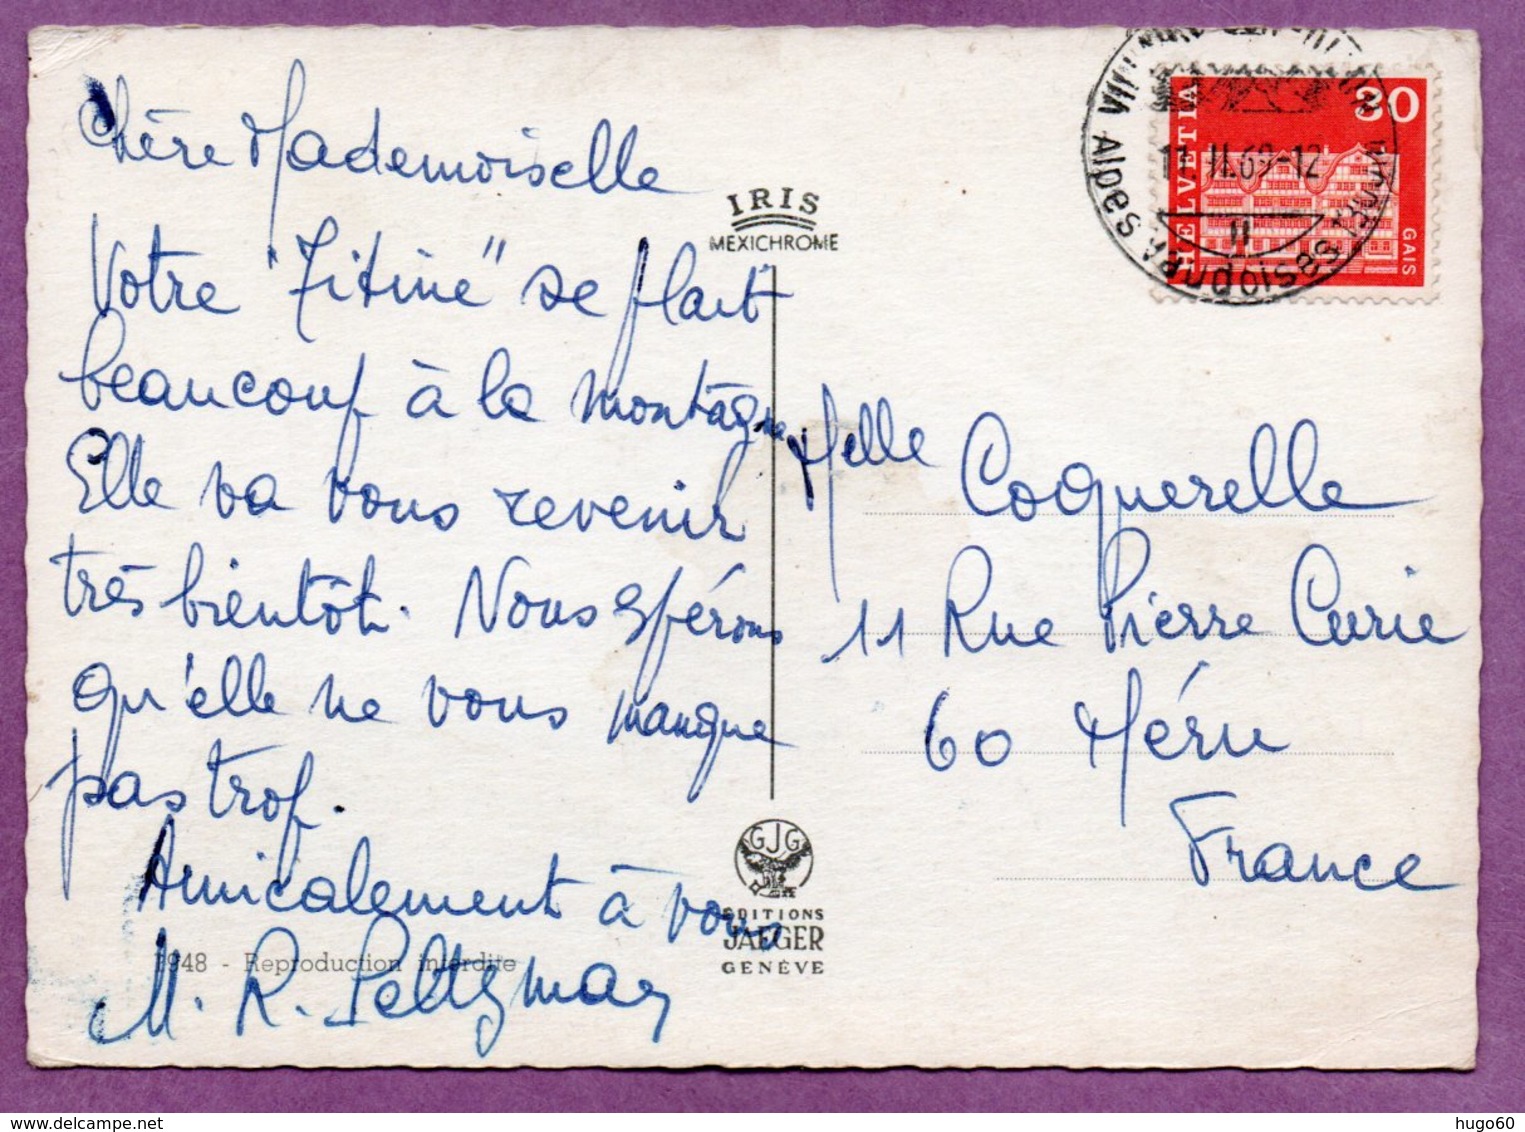 Chère Mademoiselle
Votre "Titine" se plait
beaucoup à la montagne
Elle va vous revenir
très bientôt. Nous espérons
qu'elle ne vous manque
pas trop.
Amicalement à vous
M. R.
1948 - Reproduction interdite
IRIS
MEXICHROME
GJG
EDITIONS
JAEGER
GENÈVE
HELVETIA
30
GAIS
VILLARS
Alpes Vaudoises
11.II.69-12
Melle Coquerelle
11 Rue Pierre Curie
60 Méru
France
hugo60